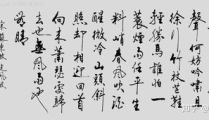 聲何妨吟嘯且
徐行竹杖芒鞋
輕勝馬誰怕一
蓑煙雨任平生
料峭春風吹酒
醒微冷山頭斜
照却相迎回首
向来蕭瑟處歸
去也無風雨也
無晴
知乎